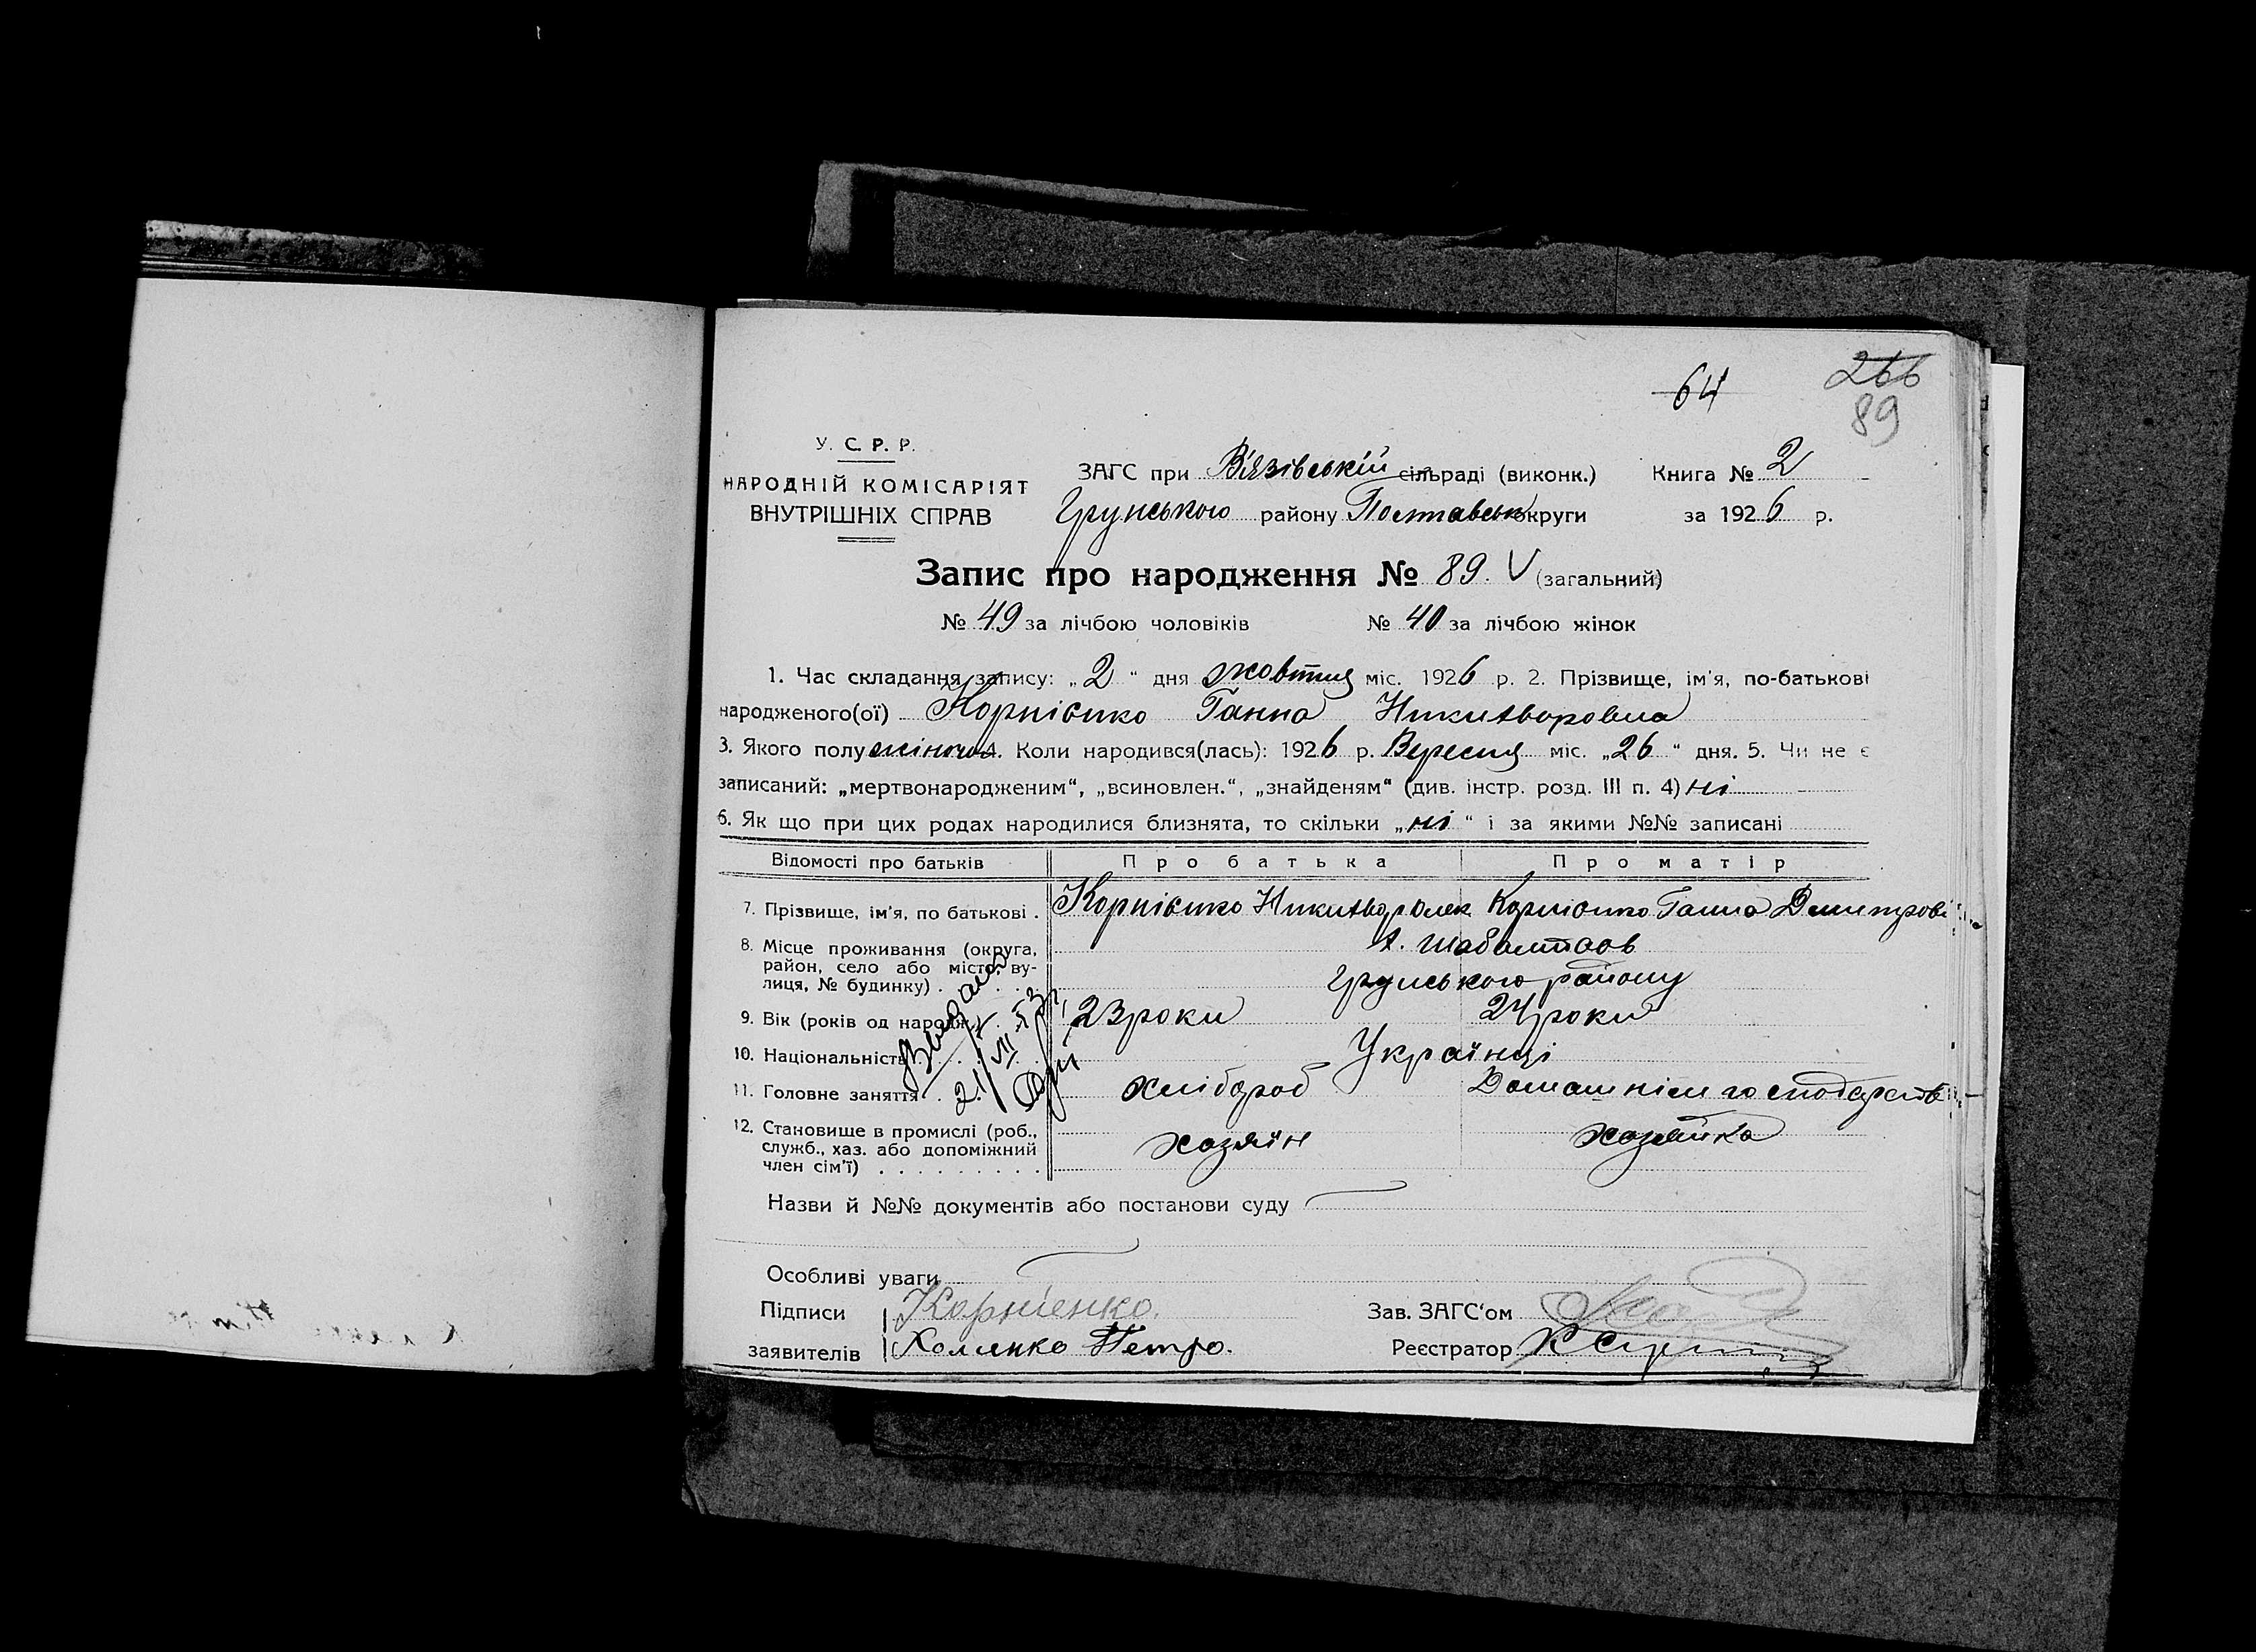 64
266
89
У. С. Р. Р.
НАРОДНІЙ КОМІСАРІЯТ
ВНУТРІШНІХ СПРАВ
ЗАГС при Вʼязівській сільраді (виконк.) Книга № 2
Грунського району Полтавськ округи за 1926 р.
Запис про народження № 89. V (загальний)
№ 49 за лічбою чоловіків № 40 за лічбою жінок
1. Час складання запису: „2“ дня жовтня міс. 1926 р. 2. Прізвище, ім'я, по-батькові
народженого(ої) Корнієнко Ганна Никифоровна
3. Якого полу жіноч 4. Коли народився(лась): 1926 р. Вересня міс. „26“ дня. 5. Чи не є
записаний: „мертвонародженим“, „всиновлен.“, „знайденям“ (див. інстр. розд. III п. 4) ні
6. Як що при цих родах народилися близнята, то скільки „ні“ і за якими №№ записані
Відомості про батьків Про батька Про матір
7. Прізвище, ім'я, по батькові . Корнієнко Никифор Олек Корнієнко Ганна Дмитрові
8. Місце проживання (округа,
район, село або місто, ву-
лиця, № будинку) . . .
Грунського району
9. Вік (років од народж.) . . 23 роки 24 роки
10. Національність . . . . Українці
11. Головне заняття . . . хлібороб Домашнім господарств
12. Становище в промислі (роб.,
служб., хаз. або допоміжний
член сім'ї) . . . . . . . . . хозяїн хозяйка
21/VII 53р.
Назви й №№ документів або постанови суду
Особливі уваги
Підписи Корнієнко. Зав. ЗАГС'ом
заявителів Петро. Реєстратор